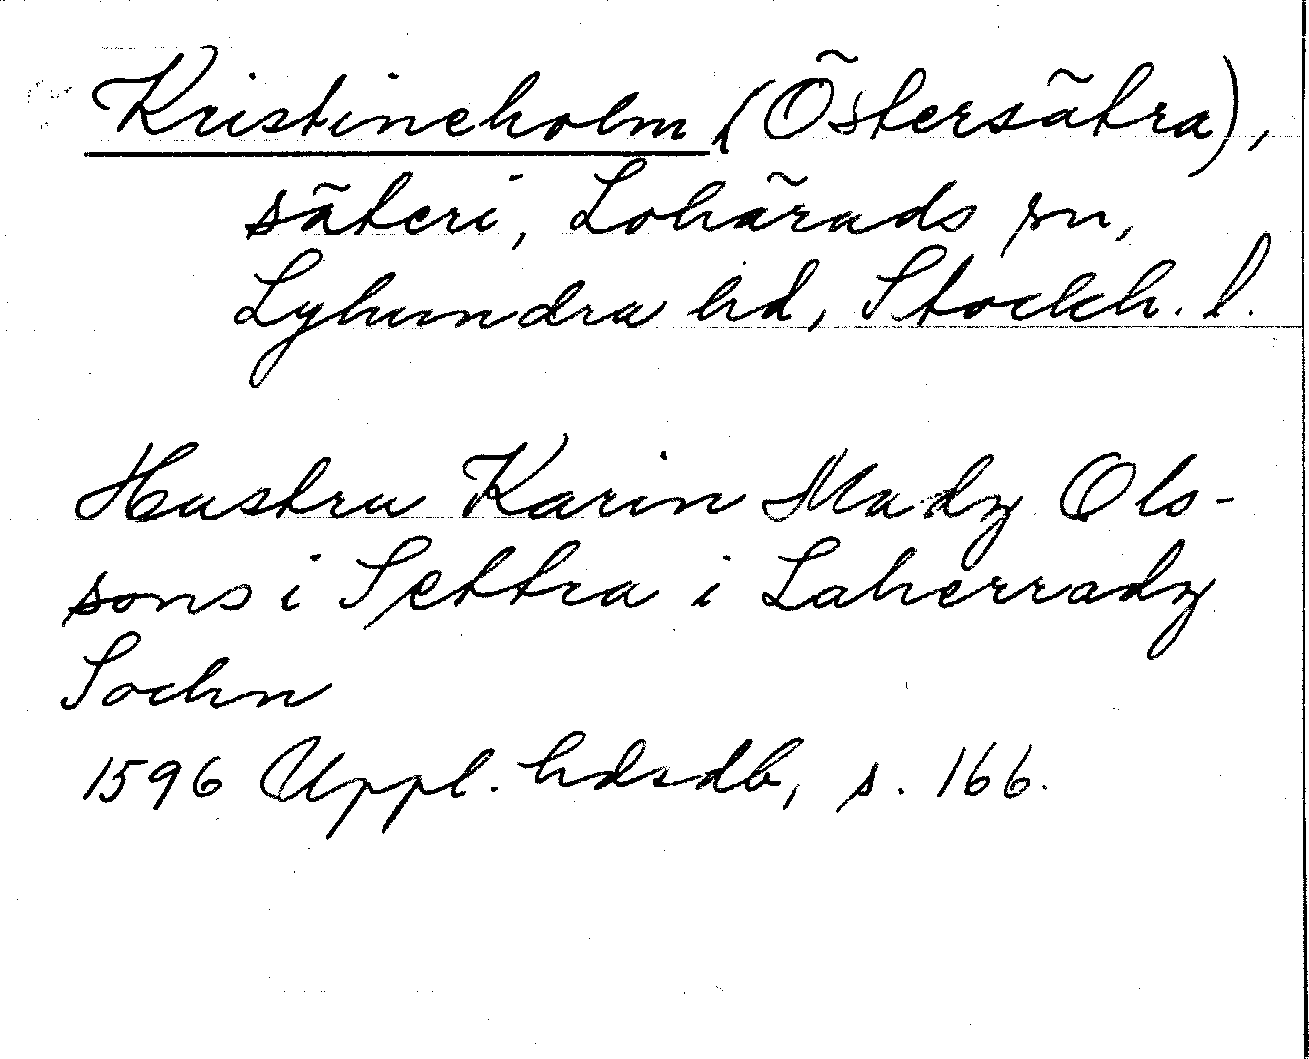 Kristineholm (Östersätra),
säteri, Lohärads sn,
Lyhundra hd, Stockh. l.
Hustru Karin Madz Ols-
sons i Settra i Laherradz
Sochn
1596 Uppl. hdsdb, s. 166.